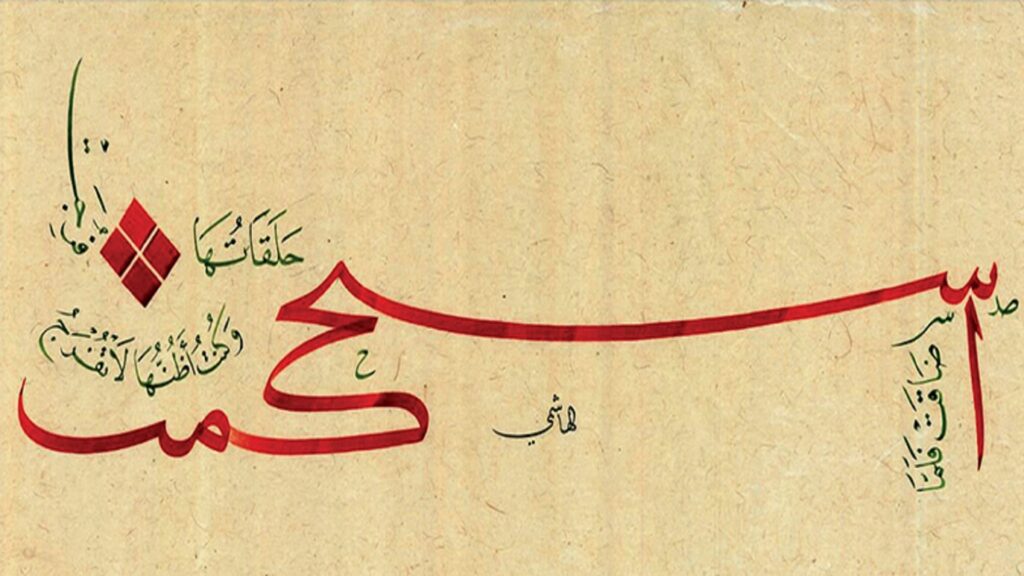 ضَاقَتْ فَلَمَّا
استحكمت
حَلَقَاتُهَا
وَكُنْتُ أَظُنُّهَا لَا تُفْرَجُ
الهاشمي